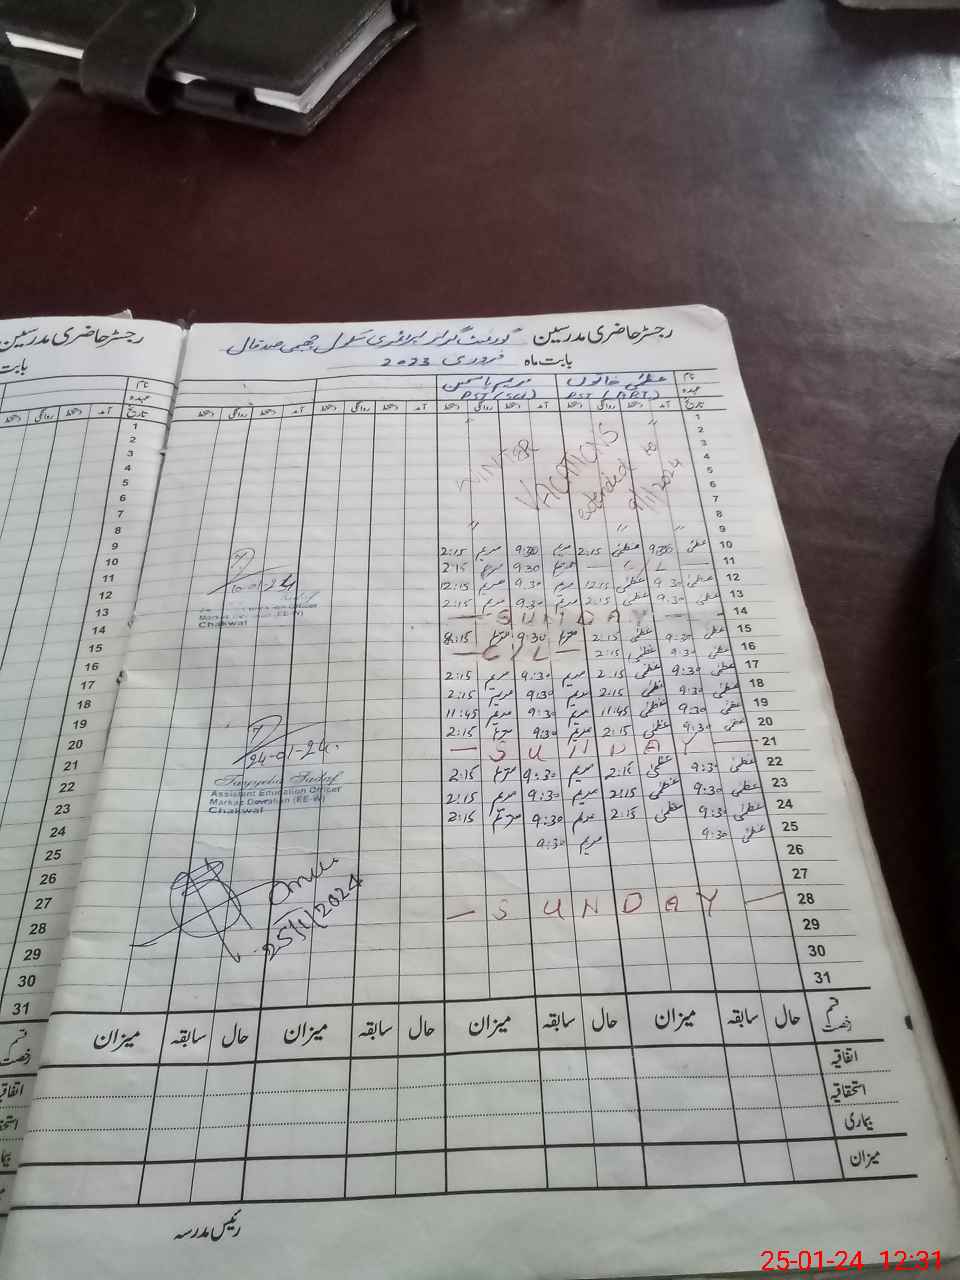 رجسٹر حاضری مدرسین گورنمنٹ گرلز پرائمری سکول
بابت ماہ فروری 2023
نام عظمیٰ خاتون مریم یاسمین
عہدہ PST (ART) PST (SCI)
تاریخ آمد دستخط روانگی دستخط آمد دستخط روانگی دستخط آمد دستخط روانگی دستخط آمد دستخط روانگی دستخط
1
2
3
4
5
6
7
8
9
WINTER
VACATIONS
extended to
9/1/2024
10 عظمیٰ 9:30 عظمیٰ 2:15 مریم 9:30 مریم 2:15
11 — C/L — مریم 9:30 مریم 2:15
12 عظمیٰ 9:30 عظمیٰ 12:15 مریم 9:30 مریم 12:15
13 عظمیٰ 9:30 عظمیٰ 2:15 مریم 9:30 مریم 2:15
14 — SUNDAY —
15 عظمیٰ 9:30 عظمیٰ 2:15 مریم 9:30 مریم 2:15
16 عظمیٰ 9:30 عظمیٰ 2:15 — C/L —
17 عظمیٰ 9:30 عظمیٰ 2:15 مریم 9:30 مریم 2:15
18 عظمیٰ 9:30 عظمیٰ 2:15 مریم 9:30 مریم 2:15
19 عظمیٰ 9:30 عظمیٰ 11:45 مریم 9:30 مریم 11:45
20 عظمیٰ 9:30 عظمیٰ 2:15 مریم 9:30 مریم 2:15
21 — SUNDAY —
22 عظمیٰ 9:30 عظمیٰ 2:15 مریم 9:30 مریم 2:15
23 عظمیٰ 9:30 عظمیٰ 2:15 مریم 9:30 مریم 2:15
24 عظمیٰ 9:30 عظمیٰ 2:15 مریم 9:30 مریم 2:15
25 عظمیٰ 9:30 مریم 9:30
26
27
28 — SUNDAY —
29
30
31
Chakwal
24-01-24.
Assistant Education Officer
Markaz Dewalian (EE-W)
Chakwal
25/1/2024
قسم رخصت حال سابقہ میزان حال سابقہ میزان حال سابقہ میزان حال سابقہ میزان
اتفاقیہ
استحقاقیہ
بیماری
میزان
رئیس مدرسہ
رجسٹر حاضری مدرسین
بابت
1
2
3
4
5
6
7
8
9
10
11
12
13
14
15
16
17
18
19
20
21
22
23
24
25
26
27
28
29
30
31
قسم رخصت
25-01-24 12:31